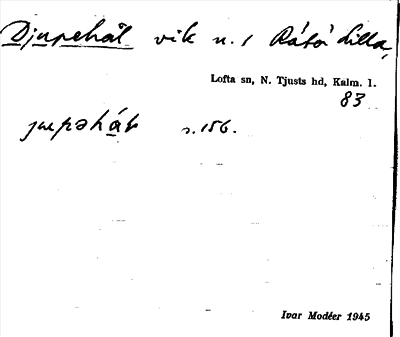 Djupehål vik n. / Råsö Lilla,
Lofta sn, N. Tjusts hd, Kalm. l.
83
s. 156.
Ivar Modéer 1945